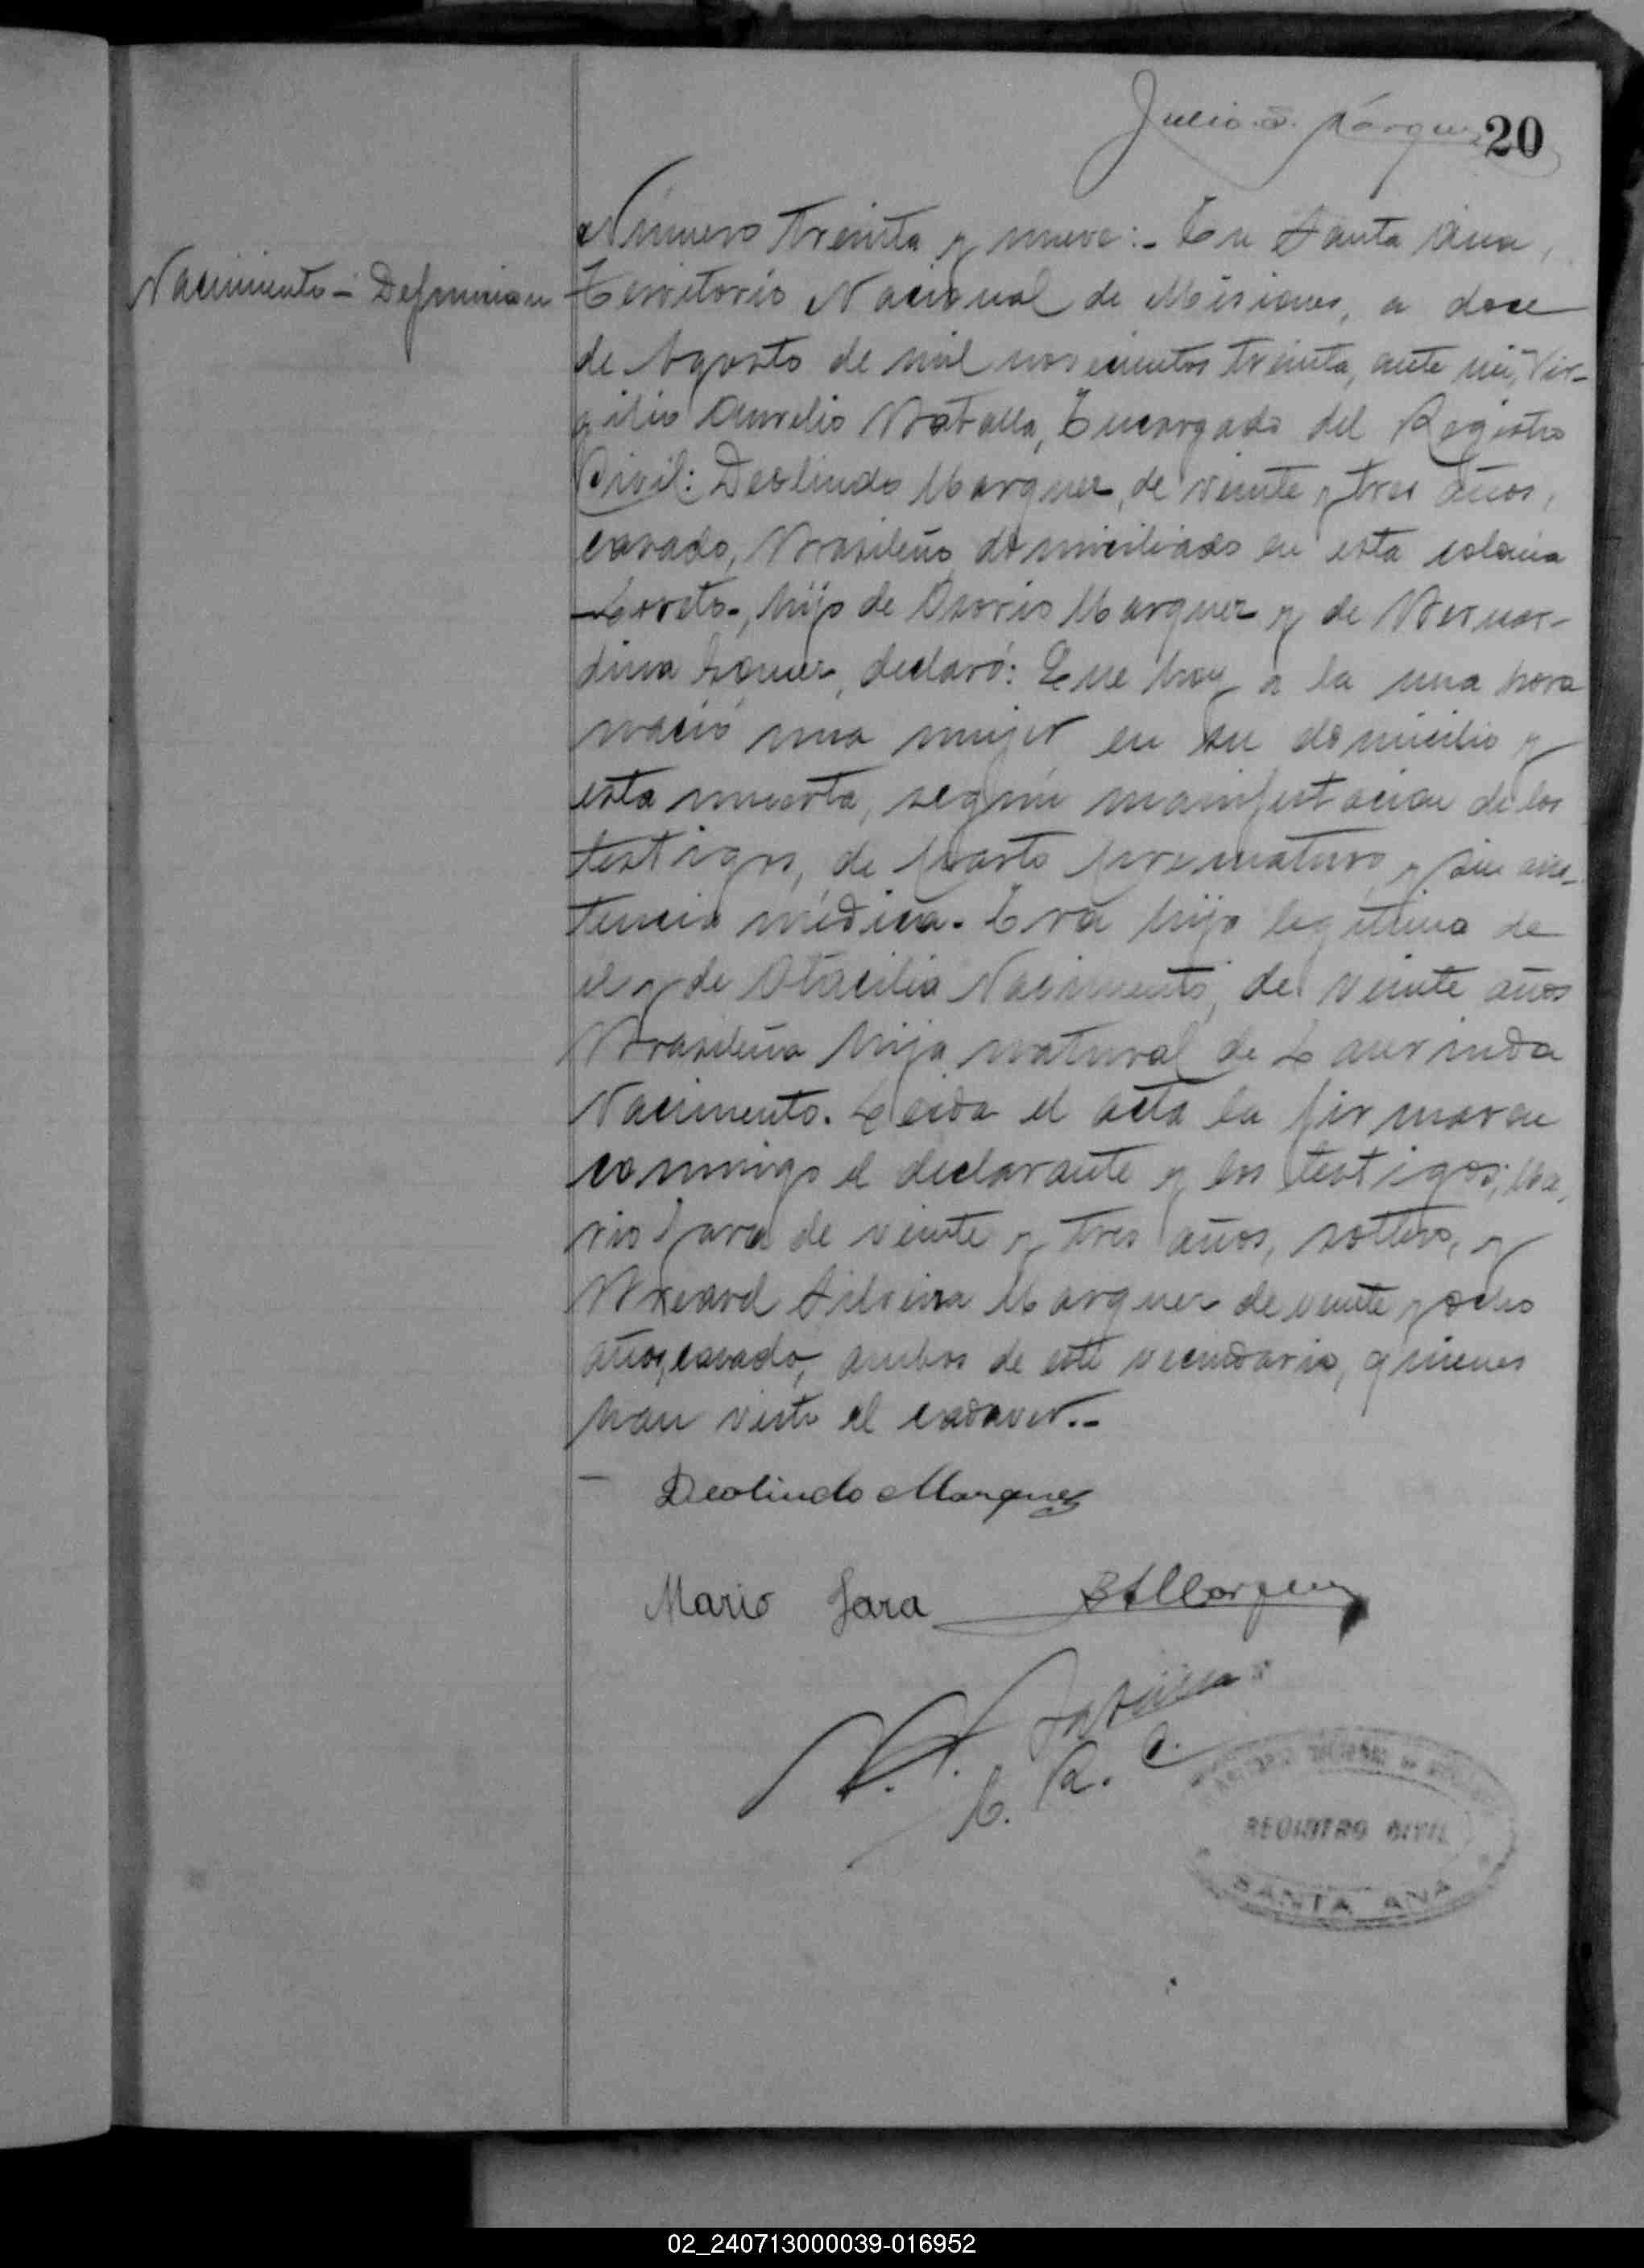 Julio
20
Nacimiento - Defunción
Número treinta y nueve:- En Santa Ana,
Territorio Nacional de Misiones, a doce
de Agosto de mil novecientos treinta, ante mí, Vir-
gilio Aurelio Batalla, Encargado del Registro
Civil: Deolindo Marquez, de veinte y tres años,
casado, Brasileño, domiciliado en esta colonia
-Loreto-, hijo de Osorio Marquez y de Bernar-
dina Gomez, declaró: Que hoy a la una hora
nació una mujer en su domicilio y
esta muerta, según manifestación de los
testigos, de parto prematuro y sin asis-
tencia médica. Era hija legitima de
el y de Otacilia Nacimento, de veinte años
Brasileña hija natural de Laurinda
Nacimento. Leida el acta la firmaron
conmigo el declarante y los testigos; Ma-
rio Jara de veinte y tres años, soltero, y
Silveira Marquez de veinte y ocho
años, casado, ambos de este vecindario, quienes
han visto el cadaver.-
Deolindo Marquez
Mario Jara
E. R. C.
REGISTRO CIVIL
SANTA ANA
02_240713000039-016952